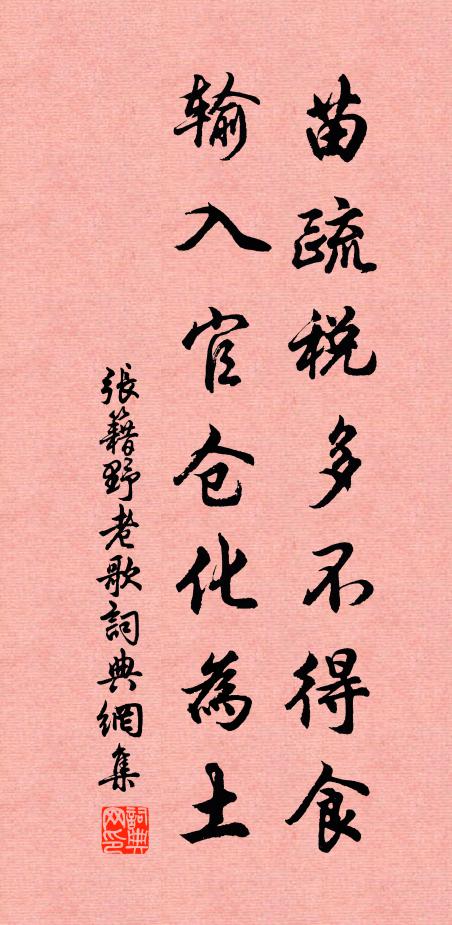 苗疏税多不得食
输入官仓化為土
張籍野老歌詞典網集
詞典网印